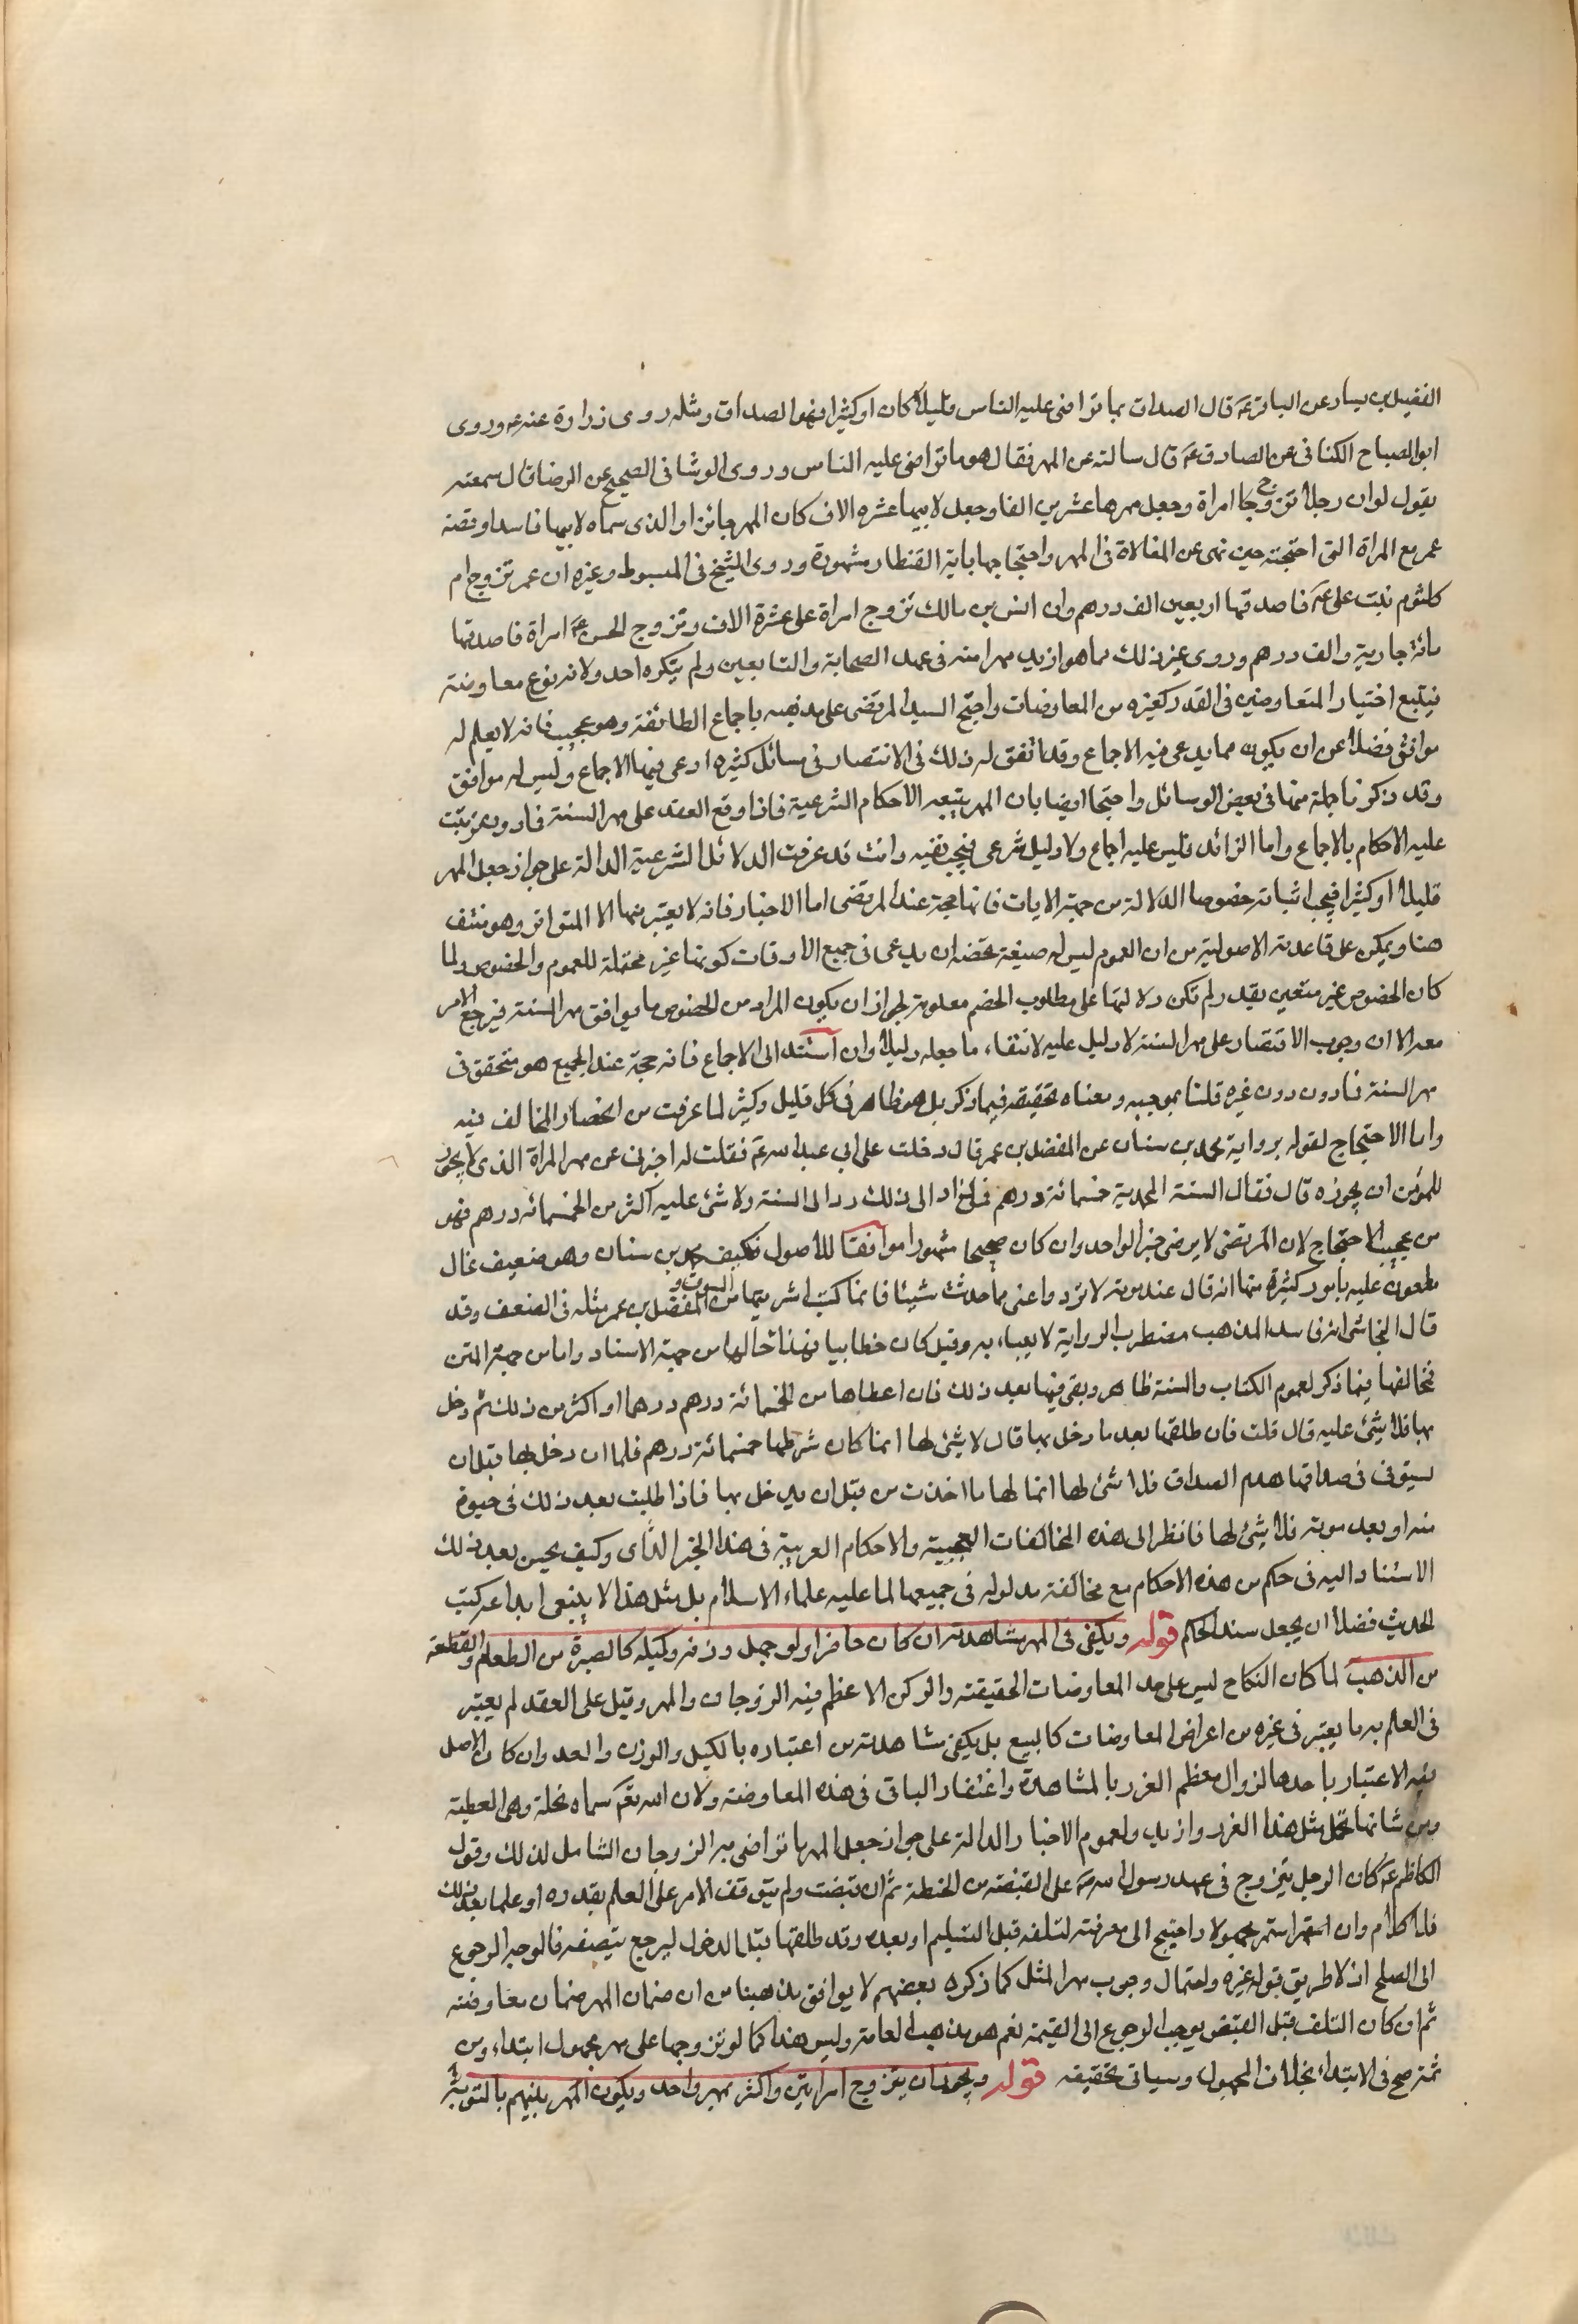 الفضيل بن يسار عن الباقر عم قال الصداق بما تراضى عليه الناس قليلا كان او كثيرا فهو الصداق ومثله روى زرارة عنه عم وروى
ابو الصباح الكنانى عن الصادق عم قال سالته عن المهر فقال هو ما تراضى عليه الناس وروى الوشا فى الصحيح عن الرضا قال سمعته
يقول لو ان رجلا تزوج امراة وجعل مهرها عشرين الفا وجعل لابيها عشره الاف كان المهر جائزا والذى سماه لابيها فاسدا وقصة
عمر مع المراة التى احتجته حين نهى عن المغالاة فى المهر واحتجاجها باية القنطار مشهورة وروى الشيخ فى المبسوط وغيره ان عمر تزوج ام
كلثوم بنت على عم فاصدقها اربعين الف درهم وان انس بن مالك تزوج امراة على عشرة الاف وتزوج الحسن عم امراة فاصدقها
مائة جارية والف درهم وروى غير ذلك مما هو ازيد مهرا منه فى عهد الصحابة والتابعين ولم ينكره احد ولانه نوع معاوضة
فيتبع اختيار المتعاوضين فى القدر كغيره من المعاوضات واحتج السيد المرتضى على مذهبه باجماع الطائفة وهو عجيب فانه لا يعلم له
موافق فضلا عن ان يكون مما يدعى فيه الاجماع وقد اتفق له ذلك فى الانتصار فى مسائل كثيره ادعى فيها الاجماع وليس له موافق
وقد ذكرنا جملة منها فى بعض الوسائل واحتجا ايضا بان المهر يتبعه الاحكام الشرعية فاذا وقع العقد على مهر السنة فما دون ترتبت
عليه الاحكام بالاجماع واما الزائد فليس عليه اجماع ولا دليل شرعى فيجب نفيه وانت قد عرفت الدلائل الشرعية الدالة على جواز جعل المهر
قليلا او كثيرا فيجب اثباته خصوصا الدلالة من جهة الايات فانها حجة عند المرتضى اما الاخبار فانه لا يعتبر منها الا المتواتر وهو منتف
هنا ويمكن على قاعدته الاصولية من ان العموم ليس له صيغة تخصه ان يدعى فى جميع الاوقات كونها غير محتملة للعموم والخصوص ولما
كان الخصوص غير متعين بقدر لم تكن دلالتها على مطلوب الخصم معلومة لجواز ان يكون المراد من الخصوص ما يوافق مهر السنة فيرجع الامر
معه الا ان وجوب الاقتصار على مهر السنة لا دليل عليه لانتفاء ما جعله دليلا وان استند الى الاجماع فانه حجة عند الجميع هو متحقق فى
مهر السنة فما دون دون غيره قلنا بموجبه ومعناه تحقيقه فيما ذكر بل هو ظاهر فى كل قليل وكثير لما عرفت من انحصار المخالف فيه
واما الاحتجاج لقوله برواية محمد بن سنان عن المفضل بن عمر قال دخلت على ابى عبد الله عم فقلت له اخبرنى عن مهر المراة الذى لا يجوز
للمؤمن ان يجوزه قال فقال السنة المحمدية خمسمائة درهم فمن زاد الى ذلك رد الى السنة ولا شئ عليه اكثر من الخمسمائه درهم فهو
من عجيب الاحتجاج لان المرتضى لا يرضى خبر الواحد وان كان صحيحا مشهورا موافقا للاصول فكيف بمحمد بن سنان وهو ضعيف غال
مطعون عليه بامور كثيرة منها انه قال عند موته لا تردوا عنى مما حدثت شيئا فانما كتب اشتريتها من السوق و المفضل بن عمر مثله فى الضعف وقد
قال النجاشى انه فاسد المذهب مضطرب الرواية لا يعباء به وقيل كان خطابيا فهذا حالها من جهة الاسناد واما من جهة المتن
فمخالفها فيما ذكر لعموم الكتاب والسنة ظاهر وبقى فيها بعد ذلك فان اعطاها من الخمسائة درهم درهما او اكثر من ذلك ثم دخل
بها فلا شئ عليه قال قلت فان طلقها بعد ما دخل بها قال لا شئ لها انما كان شرطها خمسمائة درهم فلما ان دخل بها قبل ان
تستوفى صداقها هدم الصداق فلا شئ لها انما لها ما اخذت من قبل ان يدخل بها فاذا طلبت بعد ذلك فى حيوة
منه او بعد موته فلا شئ لها فانظر الى هذه المخالفات العجيبة والاحكام الغريبة فى هذا الخبر الذى وكيف يحسن بعد ذلك
الاستناد اليه فى حكم من هذه الاحكام مع مخالفة مدلوله فى جميعها لما عليه علماء الاسلام بل مثل هذا لا ينبغى ايداعه كتب
الحديث فضلا ان يجعل سند الحكم قوله ويكفى فى المهر مشاهدته ان كان حاضرا ولو جهل وزنه وكيله كالصبرة من الطعام والقطعة
من الذهب لما كان النكاح ليس على حد المعاوضات الحقيقة والركن الاعظم فيه الزوجان والمهر وقيل على العقد لم يعتبر
فى العلم به ما يعتبر فى غيره من اعراض المعاوضات كالبيع بل يكفى مشاهدته من اعتباره بالكيل والوزن والعد وان كان الاصل
فيه الاعتبار باحدها لزوال معظم الغرر بالمشاهدة واغتفار الباقى فى هذه المعاوضة ولان الله تعالى سماه نحلة وهى العطية
ومن شانها تحمل مثل هذا الغرر وازيد ولعموم الاخبار الدالة على جواز جعل المهر ما تراضى به الزوجان الشامل لذلك وقول
الكاظم عم كان الرجل يتزوج فى عهد رسول الله ص على القبضة من الحنطة ثم ان قبضت ولم يتوقف الامر على العلم بقدره او علما بعد ذلك
فلا كلام وان استمر مجهولا واحتيج الى معرفته لتلفه قبل التسليم او بعده وقد طلقها قبل الدخول ليرجع بنصفه فالوجه الرجوع
الى الصلح اذ لا طريق بقوله غيره واحتمال وجوب مهر المثل كما ذكره بعضهم لا يوافق مذهبنا من ان ضمان المهر ضمان معاوضة
ثم ان كان التلف قبل القبض يوجب الرجوع الى القيمة نعم هو مذهب العامة وليس هذا كما لو تزوجها على مهر مجهول ابتداء ومن
ثمة صح فى الابتداء بخلاف المجهول وسياتى تحقيقه قوله ويجوز ان يتزوج امراتين واكثر بمهر واحد ويكون المهر بينهم بالسوية